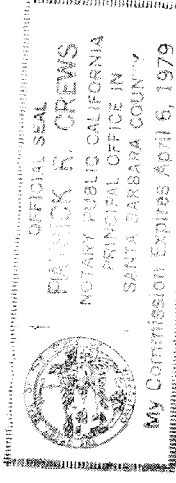 OFFICIAL SEAL
PATRICK R. CREWS
NOTARY PUBLIC CALIFORNIA
PRINCIPAL OFFICE IN
SANTA BARBARA COUNTY
My Commission Expires April 6, 1979